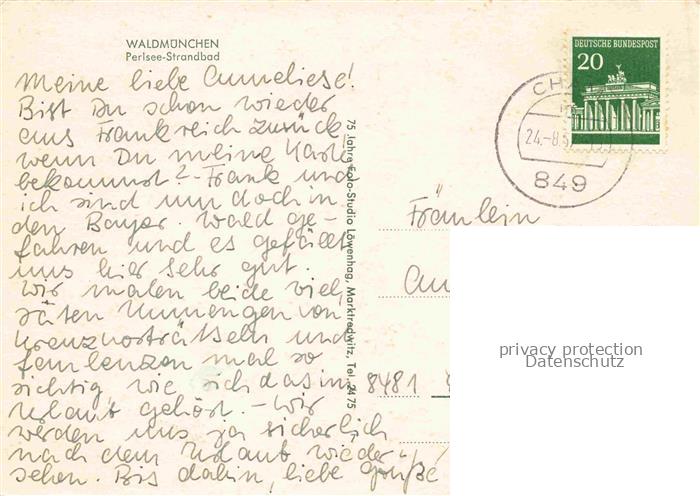 WALDMÜNCHEN
Perlsee-Strandbad
Meine liebe Anneliese!
Bist Du schon wieder
aus Frankreich zurück
wenn Du meine Karte
bekommst? - Frank und
ich sind nun doch in
den Bayer. Wald ge-
fahren und es gefällt
uns hier sehr gut.
Wir malen beide viel,
raten Unmengen von
Kreuzworträtseln und
faulenzen mal so
richtig wie sich das im
Urlaub gehört. - Wir
werden uns ja sicherlich
nach dem Urlaub wieder
sehen. Bis dahin, liebe Grüße
75 Jahre Foto-Studio Löwenhag, Marktredwitz, Tel. 24 75
DEUTSCHE BUNDESPOST
20
CHA
24.-8.
849
Fräulein
An
8481
privacy protection
Datenschutz